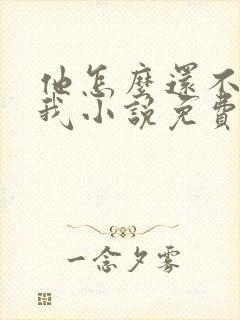 他怎麼還不
我小說免費
一念夕霧